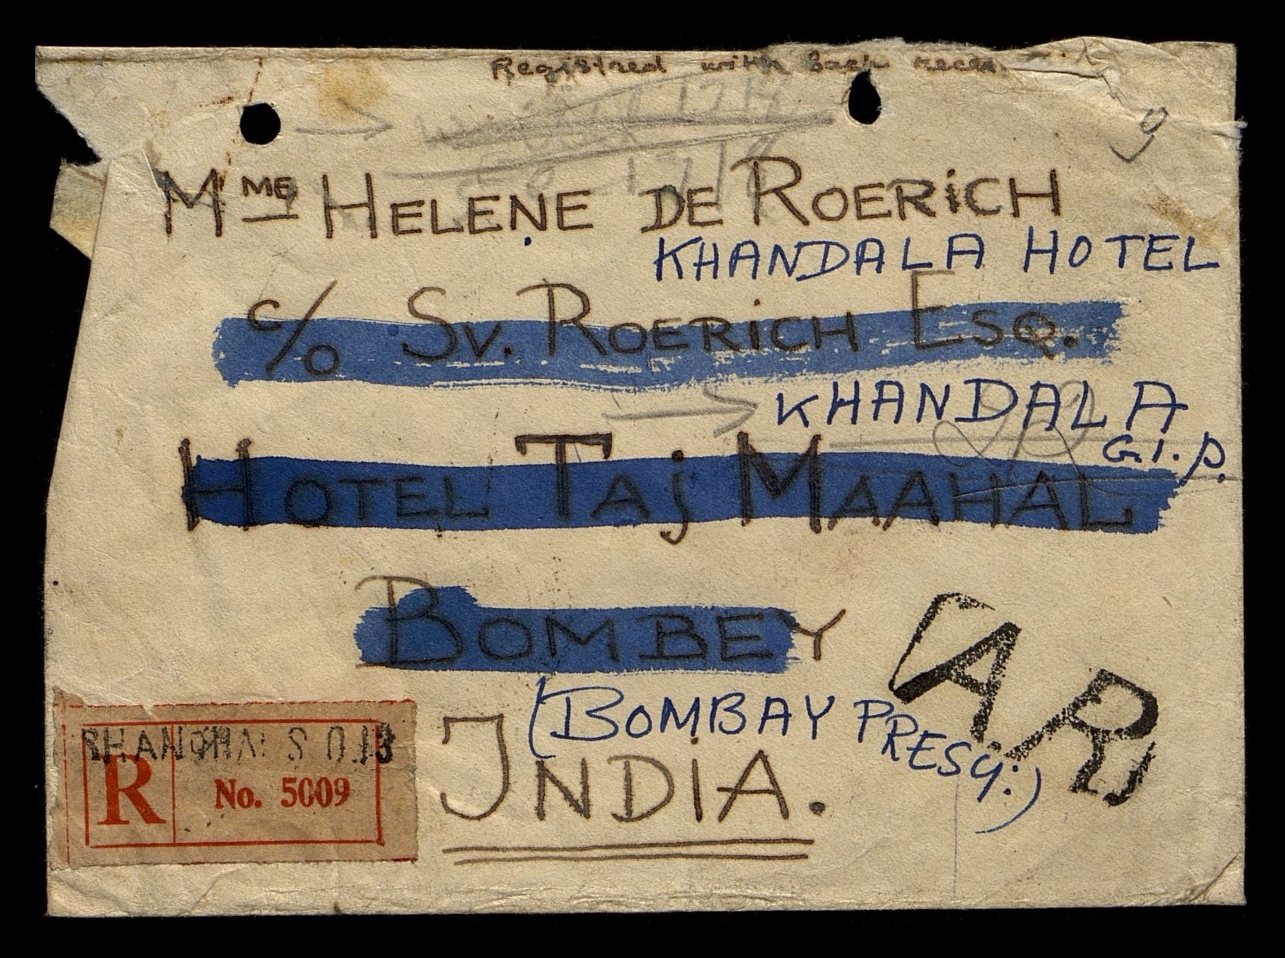 Registred with back
9
Mme HELENE DE ROERiCH
KHANDALA HOTEL
c/o Sv. ROERiCH ESQ.
KHANDALA
G.I.P.
HOTEL TAj MAAHAL
BOMBEY
(BOMBAY PRESY.)
INDiA.
(A.R)
SHANGHAI S.O.13
R No. 5009